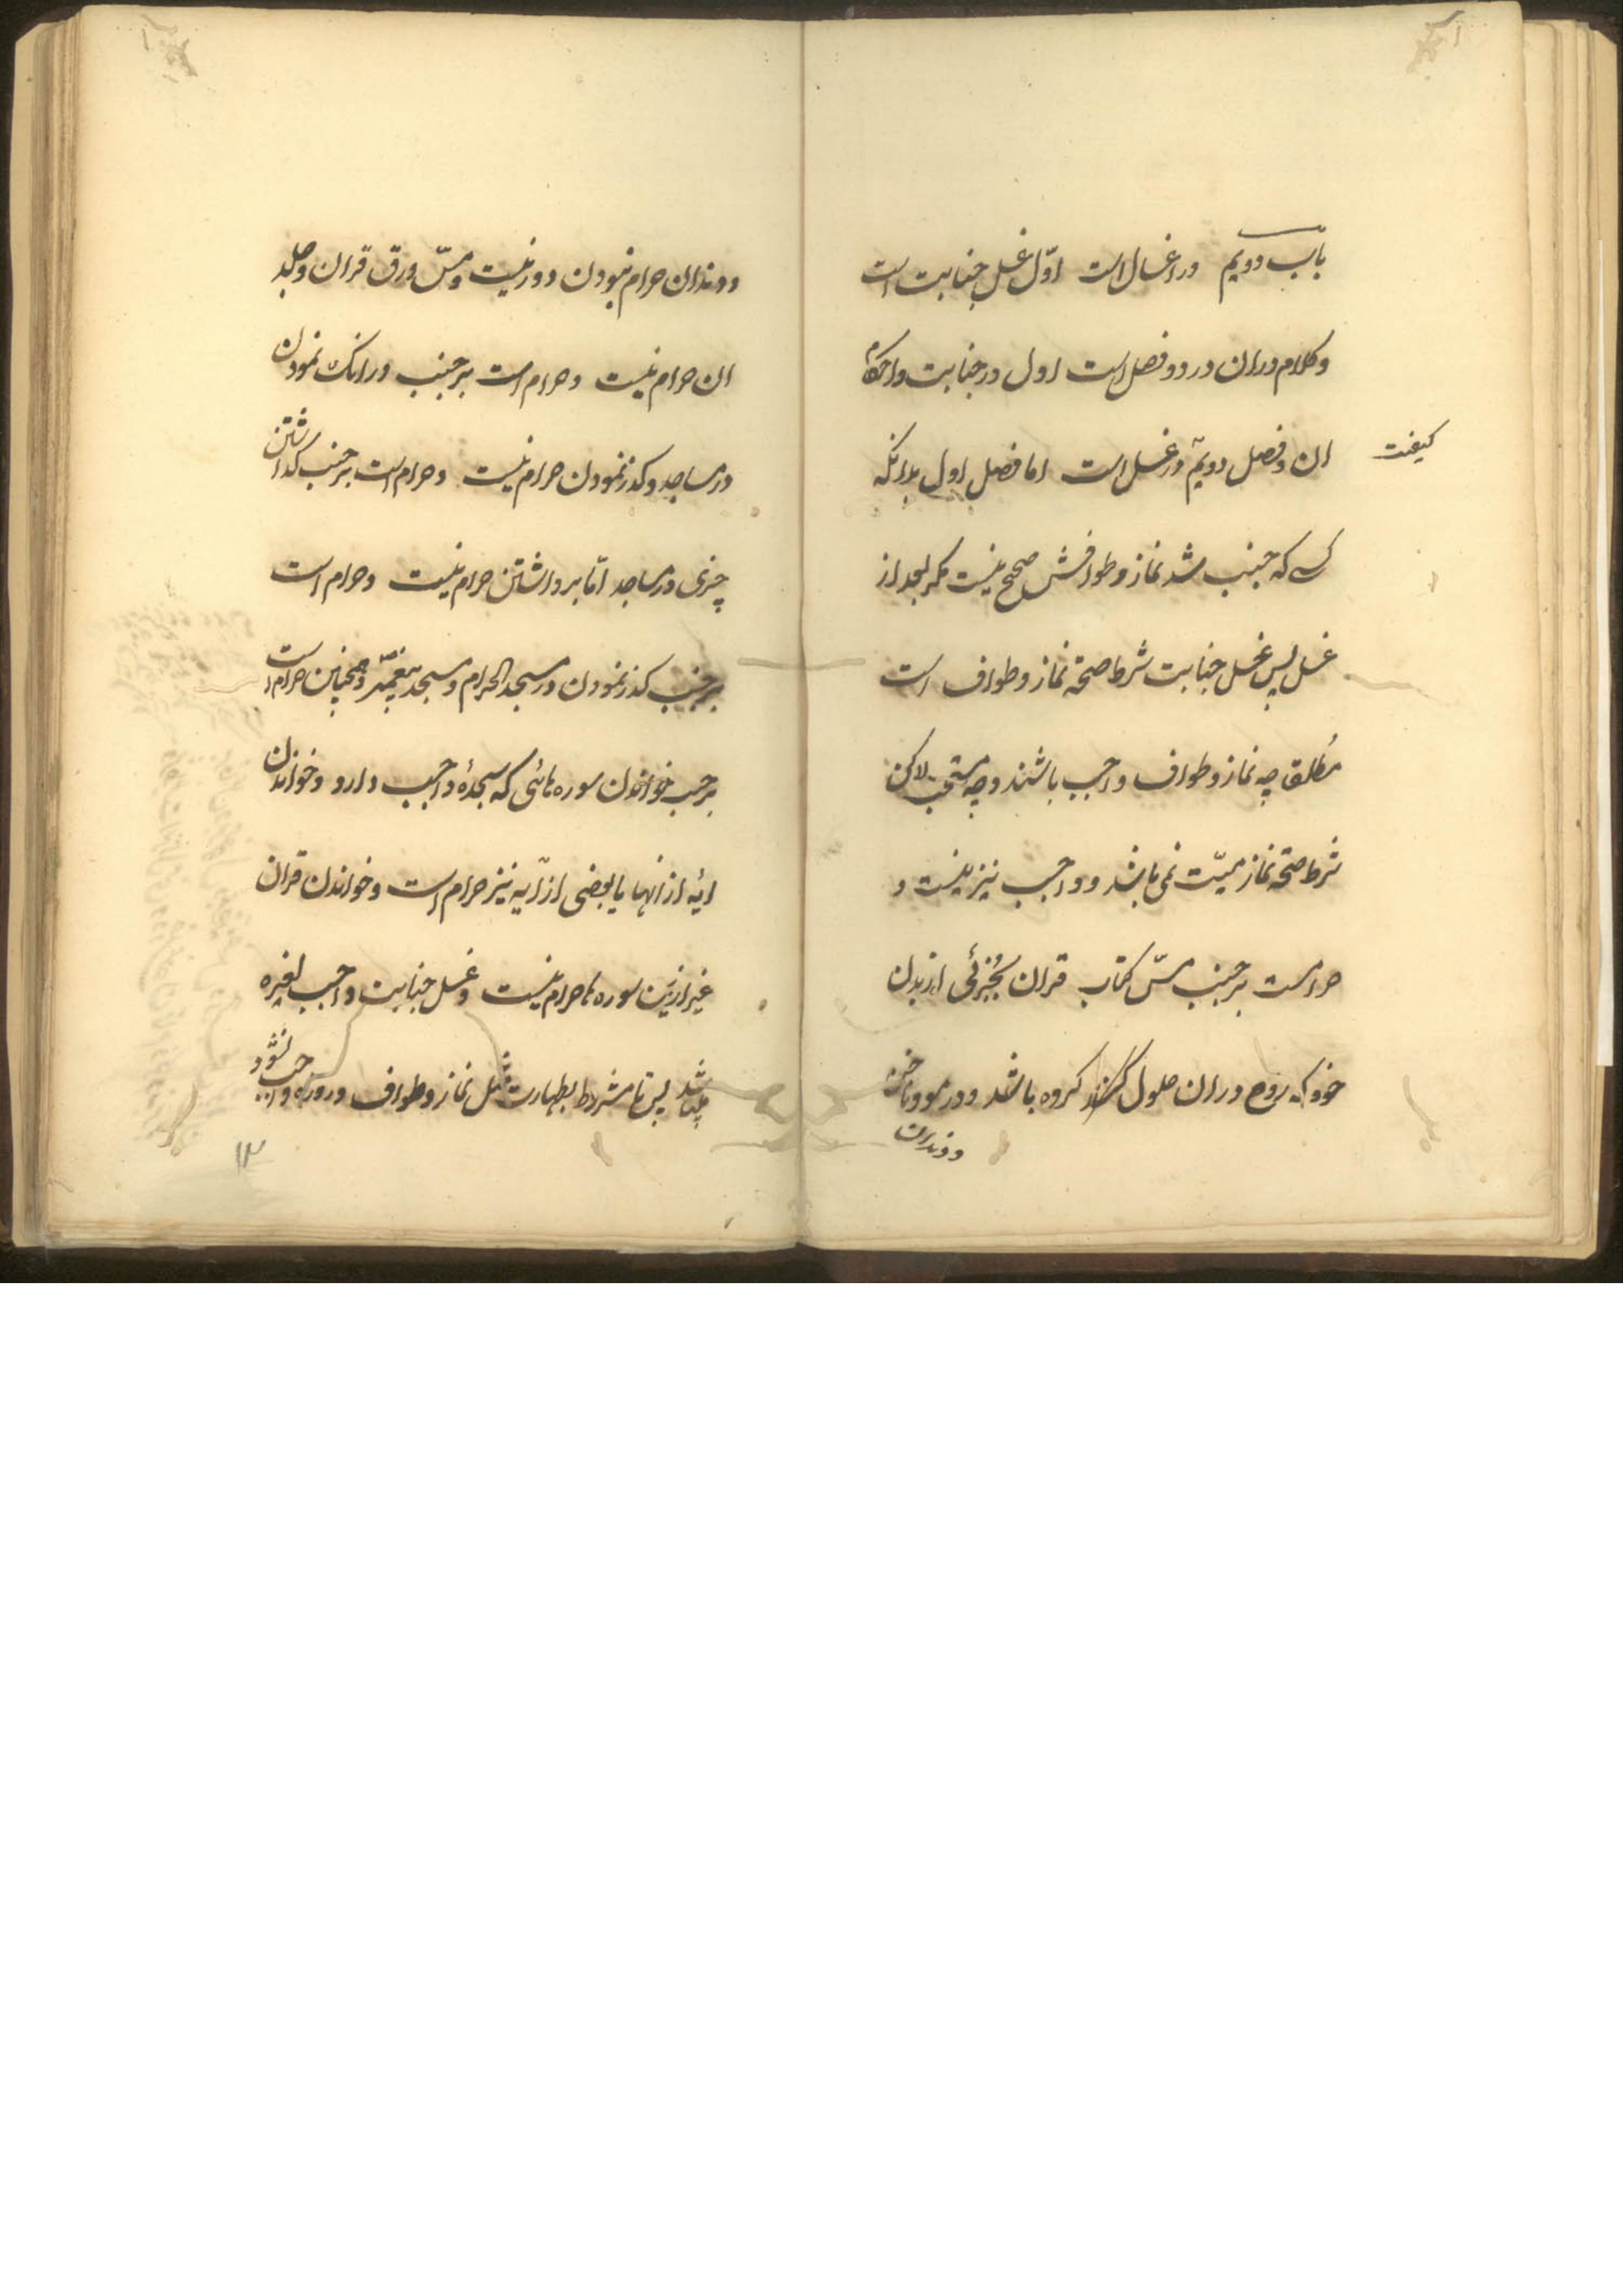 باب دویم در اغسال است اوّل غسل جنابت است
وکلام دران در دو فصل است اول در جنابت واحکام
ان وفصل دویّم در غسل است اما فصل اول بدانکه
کیفیت
کسے که جنب شد نماز وطوافش صحیح نیست مکر بعد از
غسل پس غسل جنابت شرط صحة نماز وطواف است
مُطلقا چه نماز وطواف واجب باشند وچه مستحب لاکن
شرط صحة نماز میّت نمی باشد وواجب نیز نیست و
حرامست بر جنب مسّ کتاب قران بجُزئی از بدن
خود که روح دران حلول کرده باشد ودر مو وناخن
ودندان
ودندان حرام نبودن دور نیست ومسّ ورق قران وجلد
ان حرام نیست وحرام است بر جنب درانک نمودن
در مساجد وکذر نمودن حرام نیست وحرام است بر جنب کذاشتن
چیزی در مساجد امّا برداشتن حرام نیست وحرام است
بر جنب کذر نمودن در مسجد الحرام ومسجد پیغمبر وهمچنین حرام است
بر جنب خواندن سوره هائی که سجدهٔ واجب دارد وخواندن
ایهٔ از انها یا بعضی از آیه نیز حرام است وخواندن قران
غیر ازین سوره ها حرام نیست وغسل جنابت واجب لغیره
میباشد پس تا مشروط بطهارت مثل نماز وطواف وروزه واجب نشود
۱۳